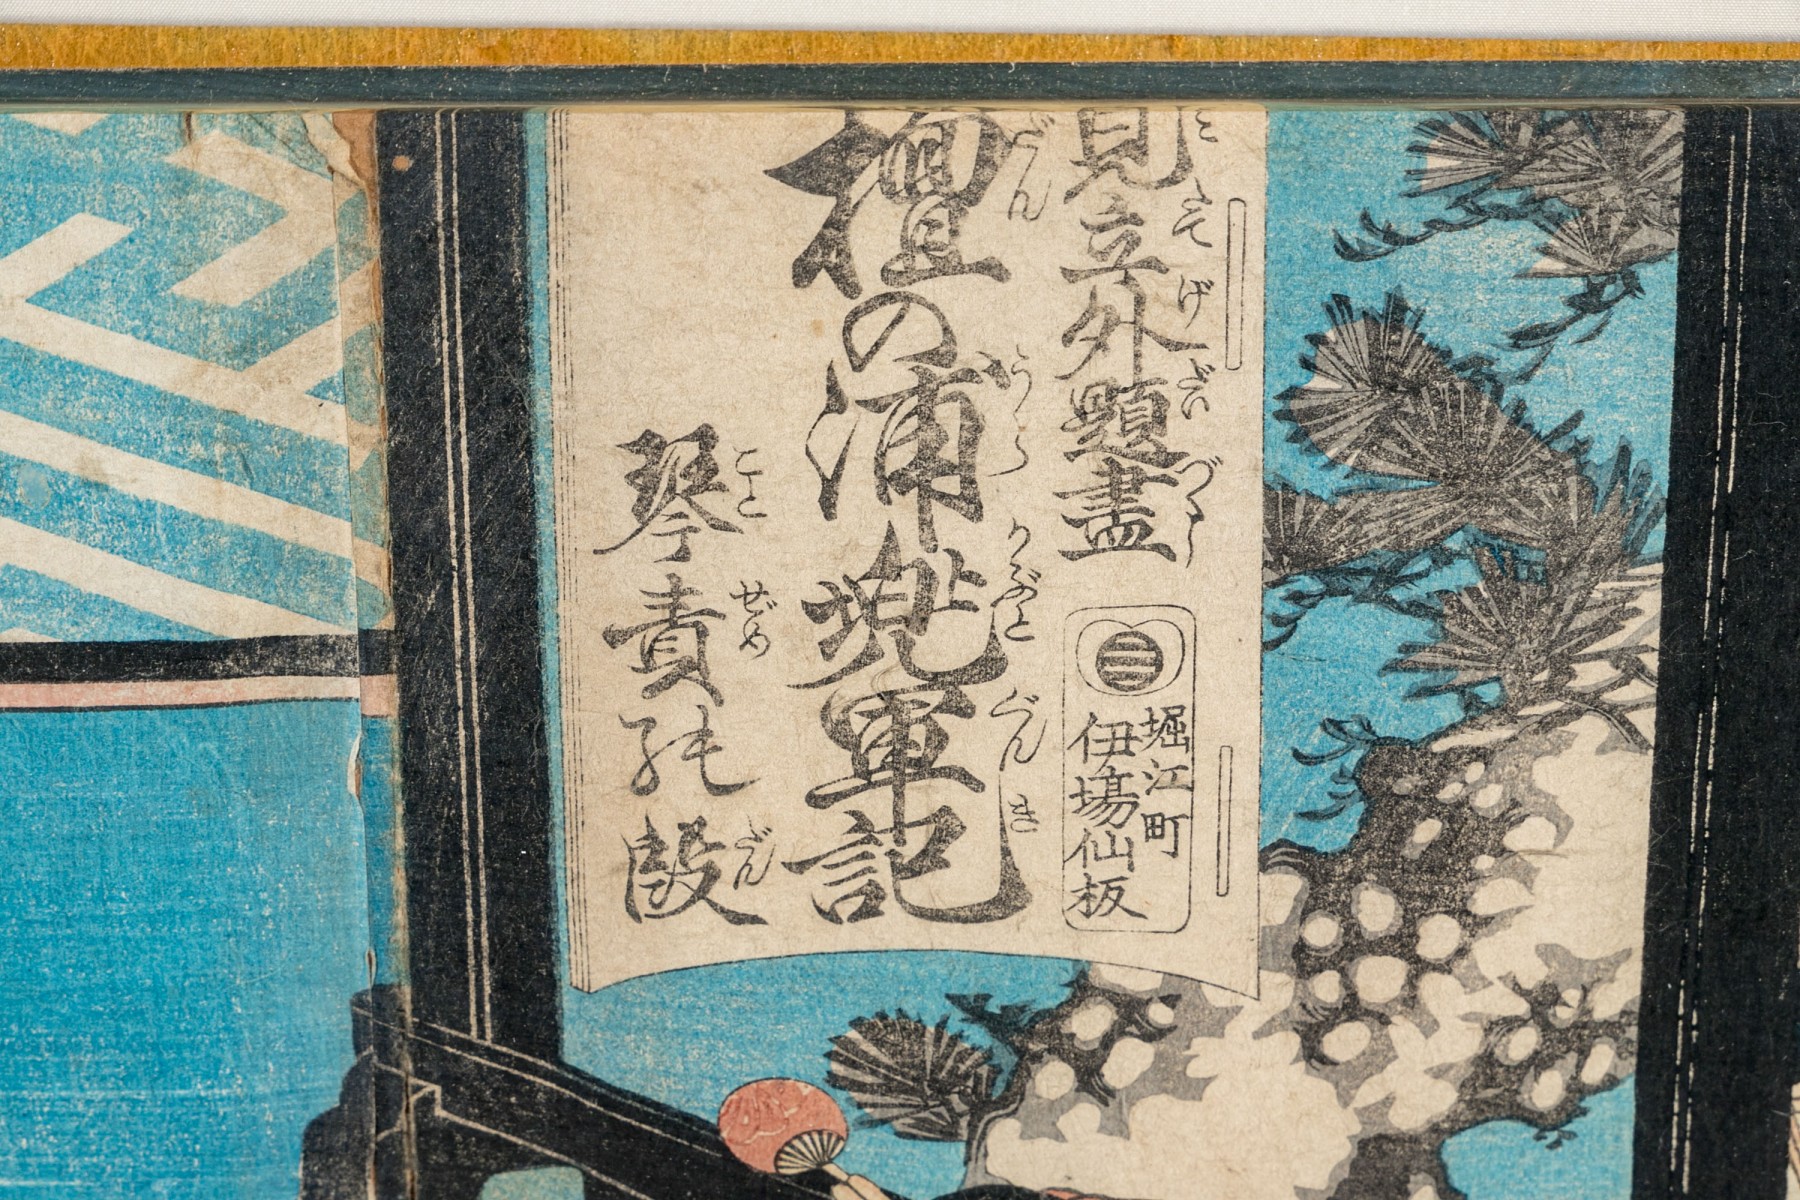 見立外題盡
みたてげだいづくし
堀江町
伊場仙板
檀の浦兜軍記
だんのうらかぶとぐんき
琴責の段
ことぜめ だん